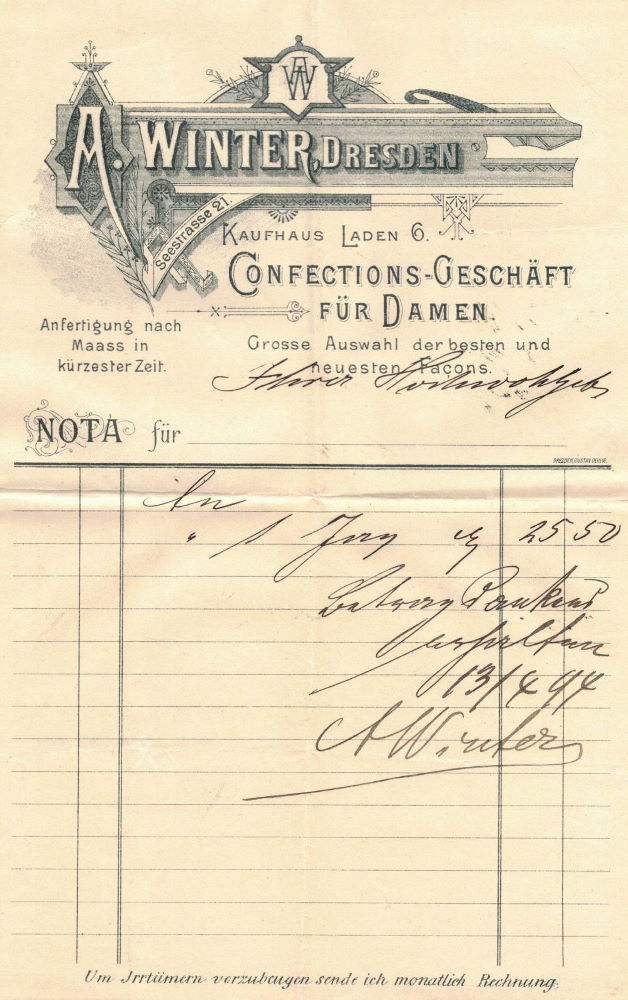 AW
A. WINTER, DRESDEN
Seestrasse 21.
KAUFHAUS LADEN 6.
CONFECTIONS-GESCHÄFT
FÜR DAMEN.
Anfertigung nach
Maass in
kürzester Zeit.
Grosse Auswahl der besten und
neuesten Façons.
Ihrer Hochwohlgeb
NOTA für
An
" 1 25 50
Betrag dankend
erhalten
13/4 94
A Winter
Um Irrtümern vorzubeugen sende ich monatlich Rechnung.